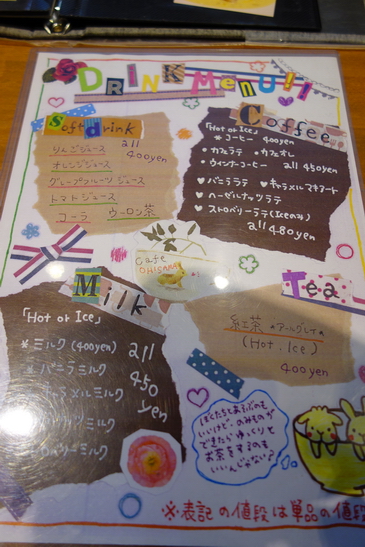 DRINK MENU!!
Soft drink
りんごジュース all 400yen
オレンジジュース
グレープフルーツジュース
トマトジュース
コーラ ウーロン茶
Coffee
「Hot or Ice」
＊コーヒー 400yen
・カフェラテ ・カフェオレ
・ウィンナーコーヒー all 450yen
♥バニララテ ♥キャラメルマキアート
♥ヘーゼルナッツラテ
♥ストロベリーラテ(Iceのみ)
all 480yen
Cafe
OHISAMA
Milk
「Hot or Ice」
＊ミルク(400yen) all 450 yen
＊バニラミルク
メルミルク
ミルク
ミルク
Tea
紅茶 ＊アールグレイ＊
(Hot.Ice)
400yen
ぼくたちとあそぶのも
いいけど…のみもの
できたらゆっくりと
お茶をするのも
いいんじゃない?
※表記の値段は単品の値段